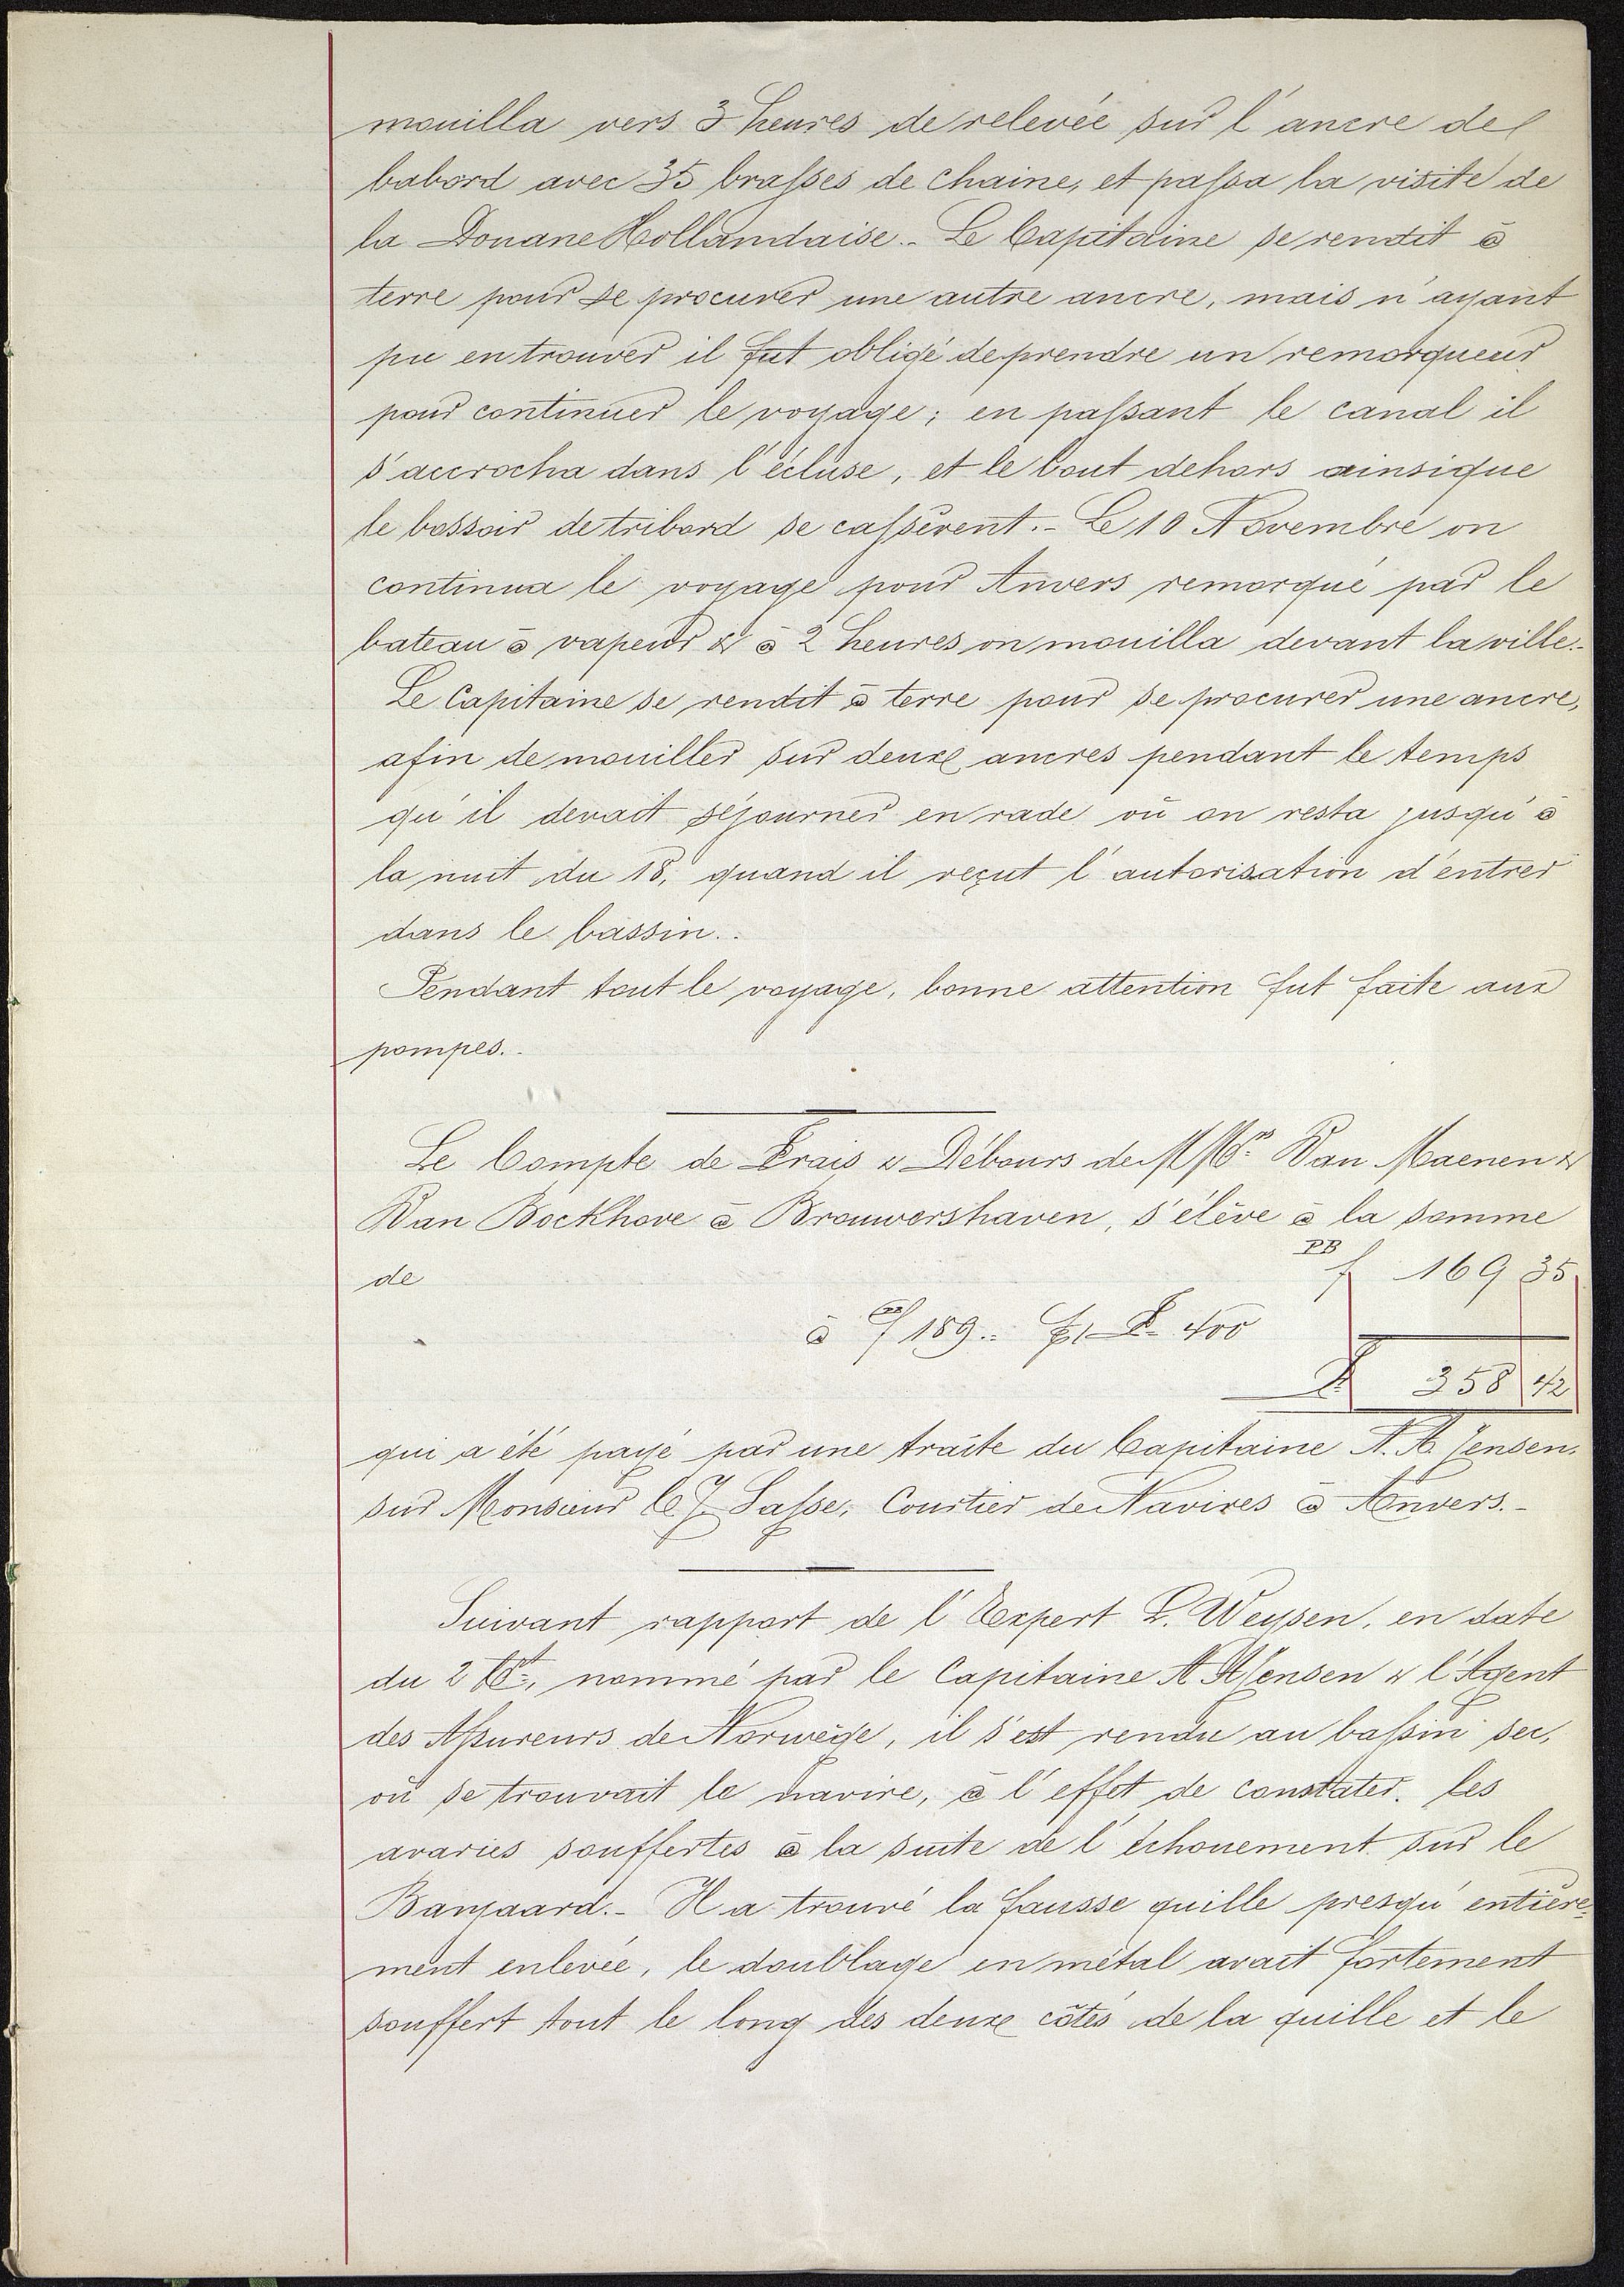 mouilla vers 3 heures de relevée sur l'ancre de
babord avec 35 brasses de chaine, et passa la visite de
la Douane Hollandaise.- Le Capitaine se rendit à
terre pour se procurer une autre ancre, mais n'ayant
pu en trouver il fut obligé de prendre un remorqueur
pour continuer le voyage; en passant le canal il
s'accrocha dans l'écluse, et le bout dehors ainsi que
le bossoir de tribord se cassèrent.- Le 10 Novembre on
continua le voyage pour Anvers remorqué par le
bateau à vapeur & à 2 heures on mouilla devant la ville.-
Le Capitaine se rendit à terre pour se procurer une ancre,
afin de mouiller sur deux ancres pendant le temps
qu'il devait séjourner en rade où on resta jusqu'à
la nuit du 18, quand il reçut l'autorisation d'entrer
dans le bassin..
Pendant tout le voyage, bonne attention fut faite aux
pompes..
Le Compte de Frais & Débours de MMrs Van Maenen &
Van Bockhove à Brouwershaven, s'élève à la somme
de PB f 169 35
à PB f 189.. F 400
F 358 42
qui a été payé par une traite du Capitaine N. A. Jensen.
sur Monsieur C J. Sasse, Courtier de Navires à Anvers.-
Suivant rapport de l'Expert L. Weysen, en date
du 2 Ct, nommé par le Capitaine N. A. Jensen & l'Agent
des Assureurs de Norwège, il s'est rendu au bassin sec,
où se trouvait le navire, à l'effet de constater les
avaries souffertes à la suite de l'échouement sur le
Banjaard.- Il a trouvé la fausse quille presqu'entière=
ment enlevée, le doublage en métal avait fortement
souffert tout le long des deux côtés de la quille et le